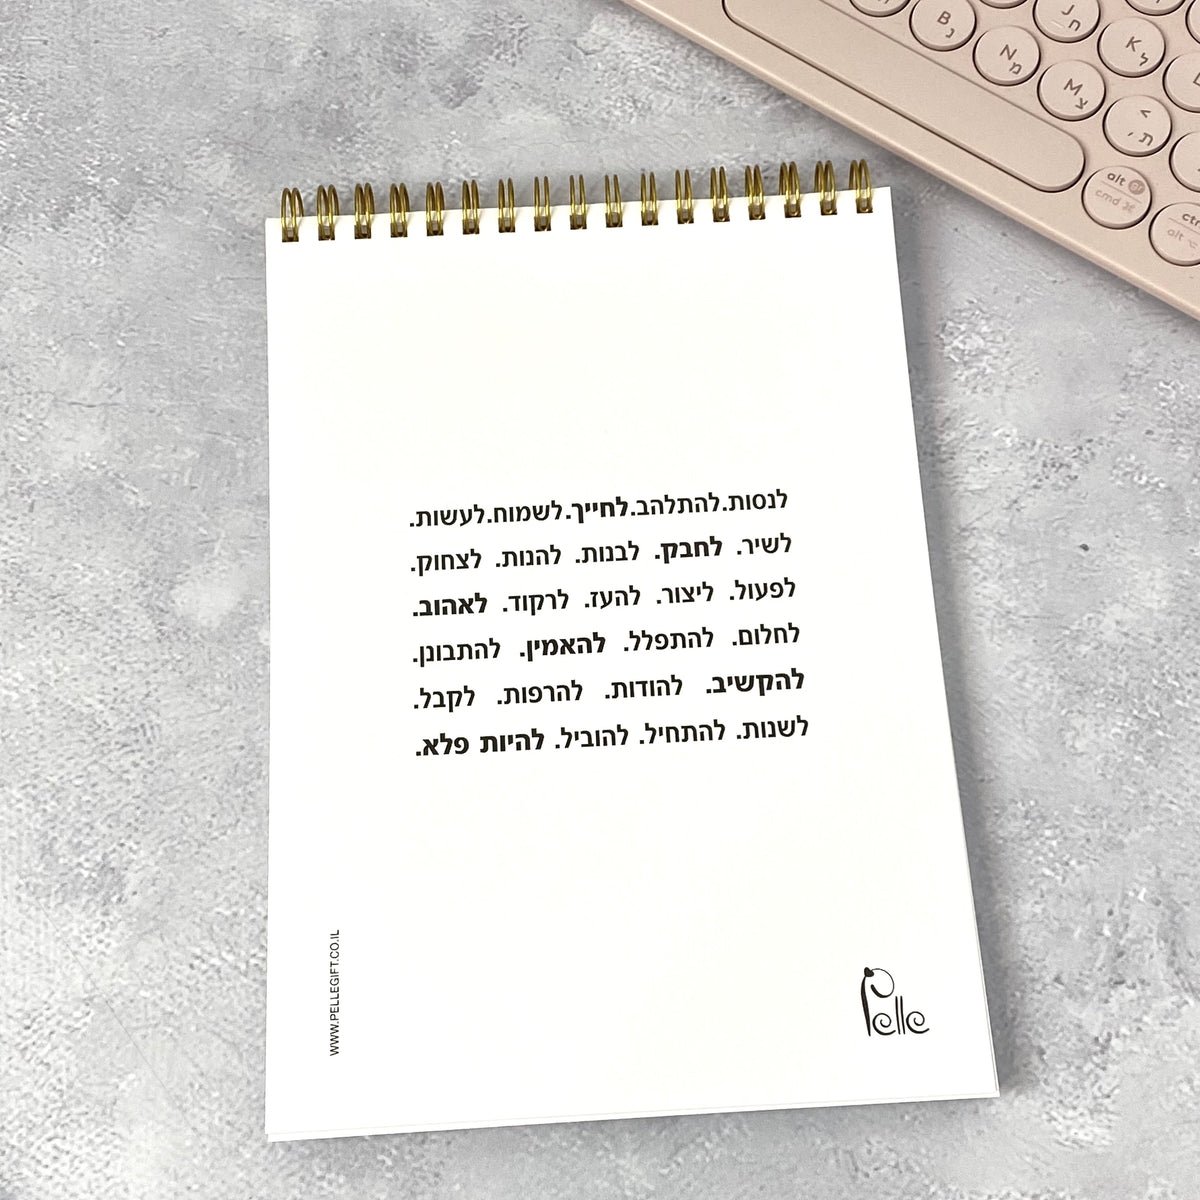 לנסות.להתלהב.לחייך.לשמוח.לעשות.
לשיר. לחבק. לבנות. להנות. לצחוק.
לפעול. ליצור. להעז. לרקוד. לאהוב.
לחלום. להתפלל. להאמין. להתבונן.
להקשיב. להודות. להרפות. לקבל.
לשנות. להתחיל. להוביל. להיות פלא.
WWW.PELLEGIFT.CO.IL
Pelle
B נ
N מ
J ח
K ל
M צ
< ת ,
alt
cmd ⌘
alt ⌥